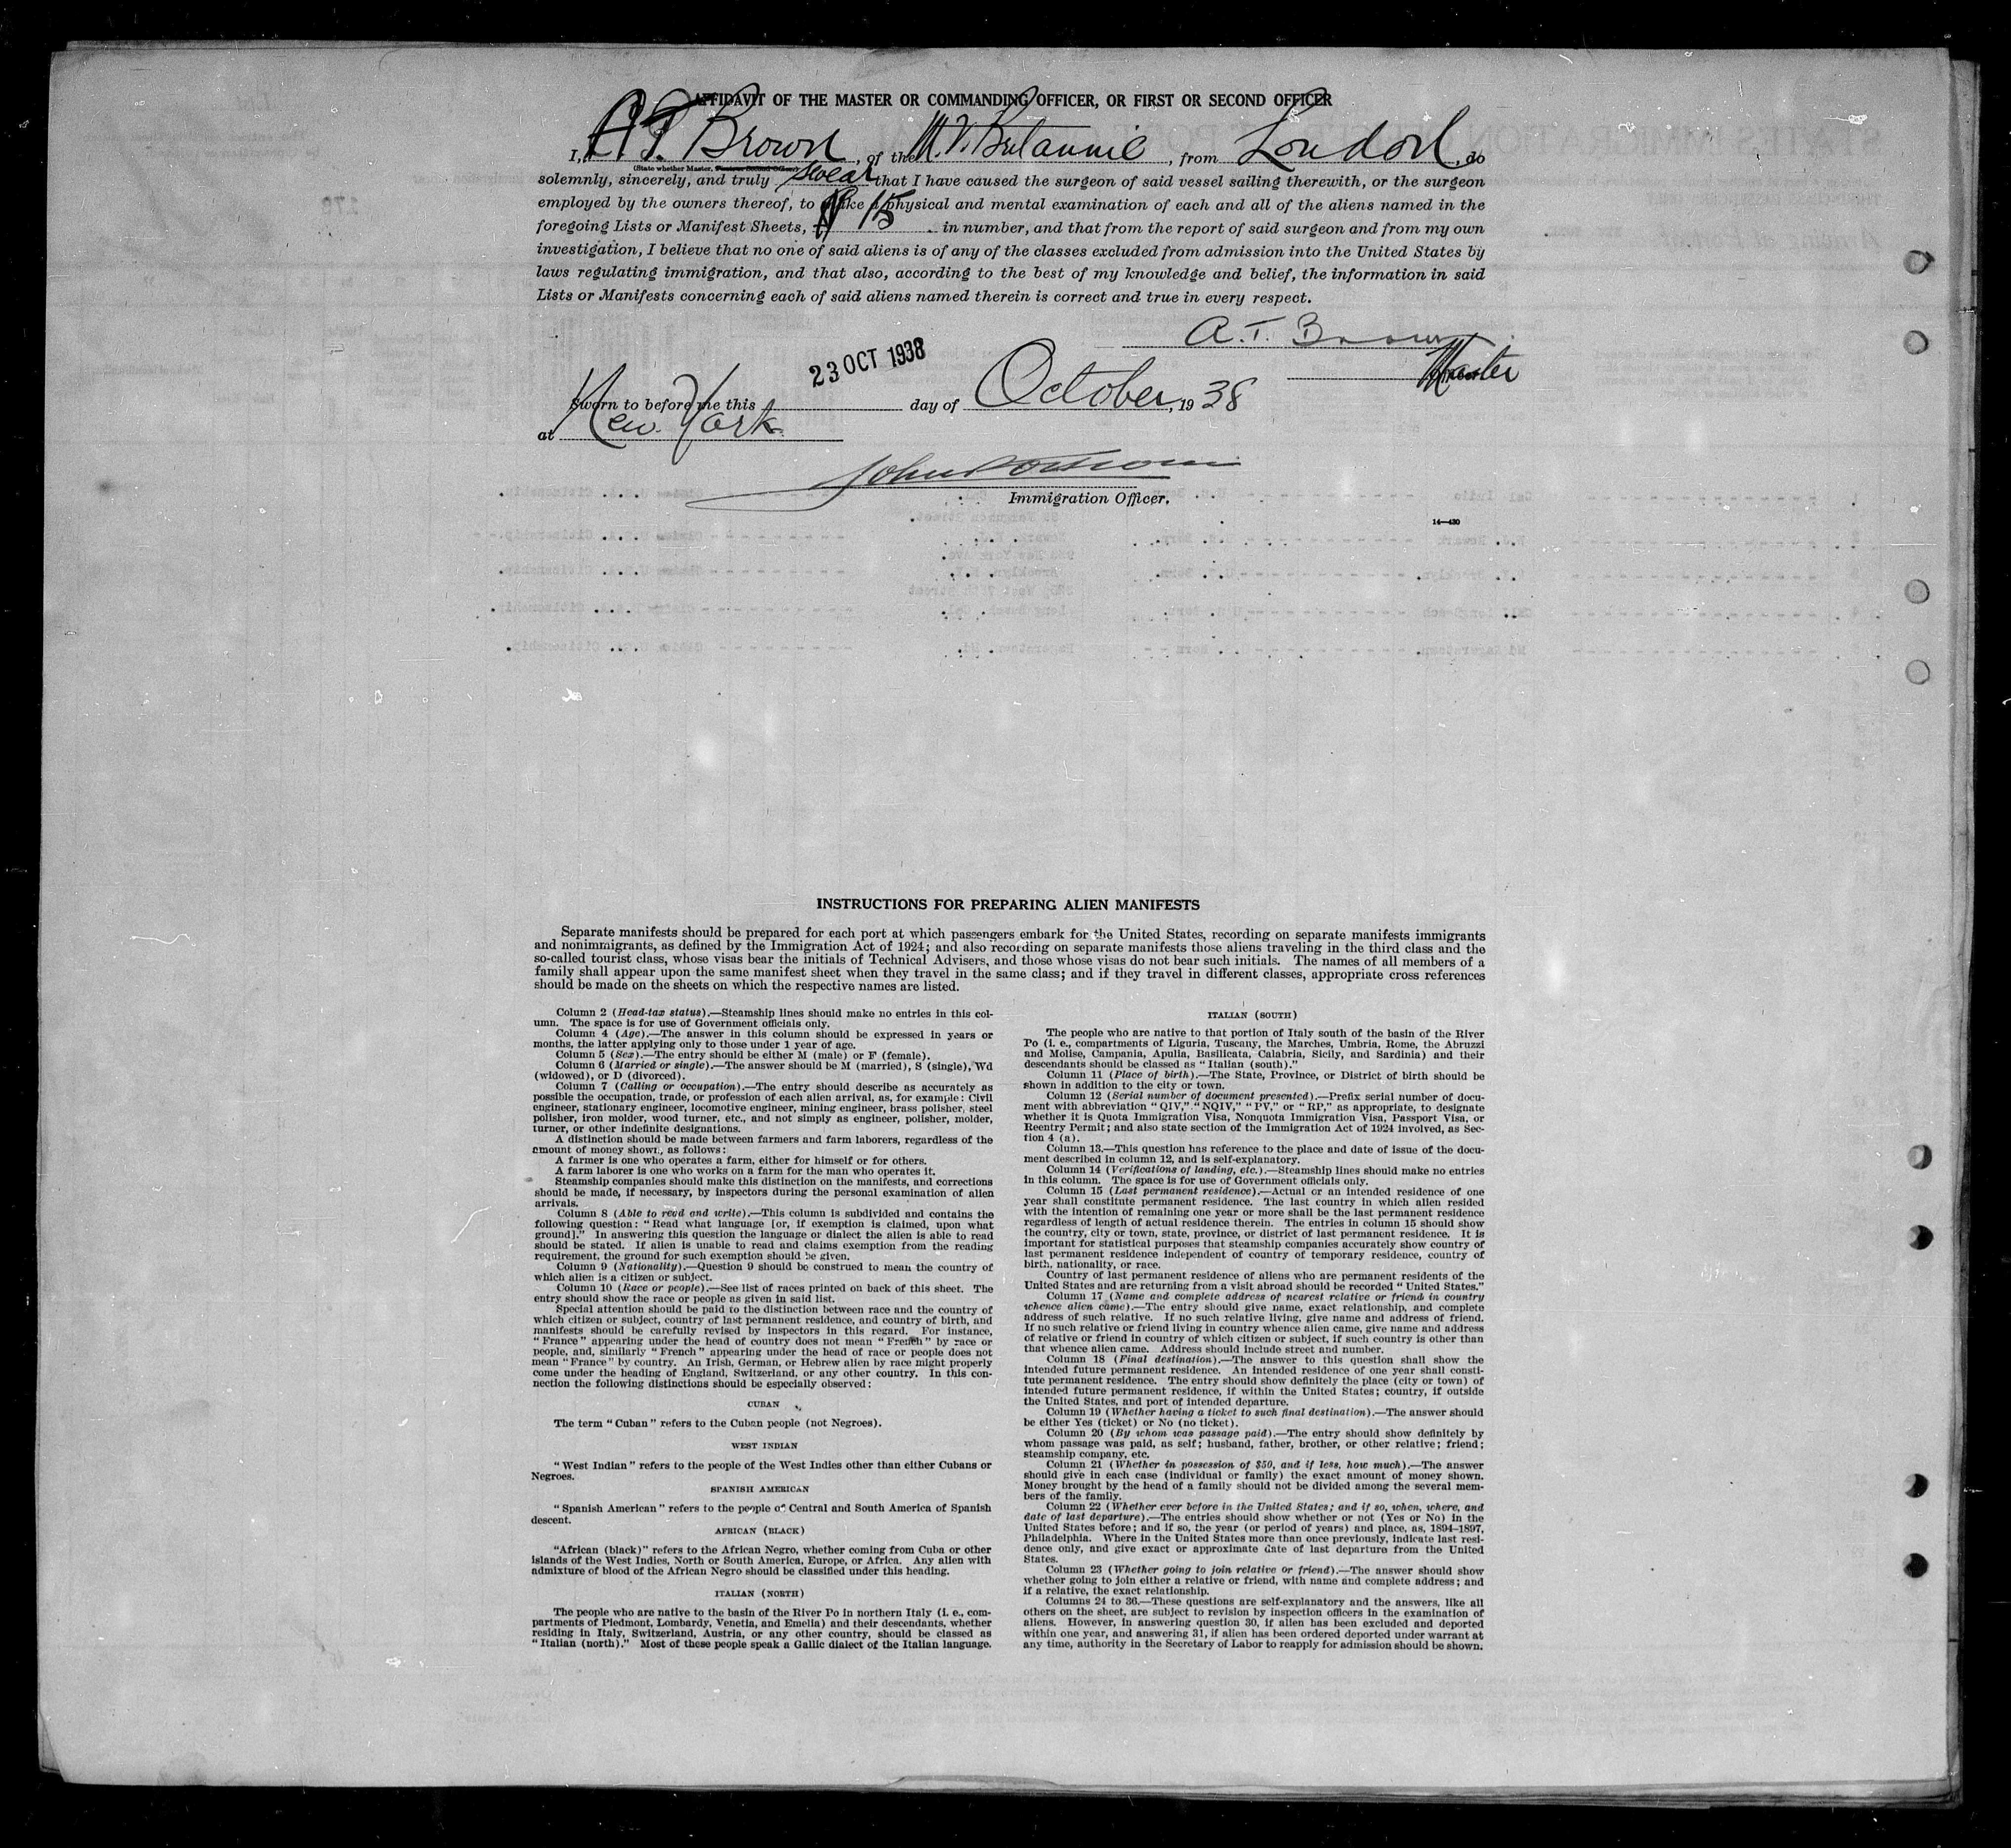 AFFIDAVIT OF THE MASTER OR COMMANDING OFFICER, OR FIRST OR SECOND OFFICER
I, A T Brown, of the M. V. Britannic, from London, do
(State whether Master, First or Second Officer)
solemnly, sincerely, and truly swear that I have caused the surgeon of said vessel sailing therewith, or the surgeon
employed by the owners thereof, to make a physical and mental examination of each and all of the aliens named in the
foregoing Lists or Manifest Sheets, 15 in number, and that from the report of said surgeon and from my own
investigation, I believe that no one of said aliens is of any of the classes excluded from admission into the United States by
laws regulating immigration, and that also, according to the best of my knowledge and belief, the information in said
Lists or Manifests concerning each of said aliens named therein is correct and true in every respect.
A. T. Brown
Master
23 OCT 1938
Sworn to before me this day of October, 1938
at New York
Immigration Officer.
14—430
INSTRUCTIONS FOR PREPARING ALIEN MANIFESTS
Separate manifests should be prepared for each port at which passengers embark for the United States, recording on separate manifests immigrants
and nonimmigrants, as defined by the Immigration Act of 1924; and also recording on separate manifests those aliens traveling in the third class and the
so-called tourist class, whose visas bear the initials of Technical Advisers, and those whose visas do not bear such initials. The names of all members of a
family shall appear upon the same manifest sheet when they travel in the same class; and if they travel in different classes, appropriate cross references
should be made on the sheets on which the respective names are listed.
Column 2 (Head-tax status).—Steamship lines should make no entries in this col-
umn. The space is for use of Government officials only.
Column 4 (Age).—The answer in this column should be expressed in years or
months, the latter applying only to those under 1 year of age.
Column 5 (Sex).—The entry should be either M (male) or F (female).
Column 6 (Married or single).—The answer should be M (married), S (single), Wd
(widowed), or D (divorced).
Column 7 (Calling or occupation).—The entry should describe as accurately as
possible the occupation, trade, or profession of each alien arrival, as, for example: Civil
engineer, stationary engineer, locomotive engineer, mining engineer, brass polisher, steel
polisher, iron molder, wood turner, etc., and not simply as engineer, polisher, molder,
turner, or other indefinite designations.
A distinction should be made between farmers and farm laborers, regardless of the
amount of money shown, as follows:
A farmer is one who operates a farm, either for himself or for others.
A farm laborer is one who works on a farm for the man who operates it.
Steamship companies should make this distinction on the manifests, and corrections
should be made, if necessary, by inspectors during the personal examination of alien
arrivals.
Column 8 (Able to read and write).—This column is subdivided and contains the
following question: "Read what language [or, if exemption is claimed, upon what
ground]." In answering this question the language or dialect the alien is able to read
should be stated. If alien is unable to read and claims exemption from the reading
requirement, the ground for such exemption should be given.
Column 9 (Nationality).—Question 9 should be construed to mean the country of
which alien is a citizen or subject.
Column 10 (Race or people).—See list of races printed on back of this sheet. The
entry should show the race or people as given in said list.
Special attention should be paid to the distinction between race and the country of
which citizen or subject, country of last permanent residence, and country of birth, and
manifests should be carefully revised by inspectors in this regard. For instance,
"France" appearing under the head of country does not mean "French" by race or
people, and, similarly "French" appearing under the head of race or people does not
mean "France" by country. An Irish, German, or Hebrew alien by race might properly
come under the heading of England, Switzerland, or any other country. In this con-
nection the following distinctions should be especially observed:
CUBAN
The term "Cuban" refers to the Cuban people (not Negroes).
WEST INDIAN
"West Indian" refers to the people of the West Indies other than either Cubans or
Negroes.
SPANISH AMERICAN
"Spanish American" refers to the people of Central and South America of Spanish
descent.
AFRICAN (BLACK)
"African (black)" refers to the African Negro, whether coming from Cuba or other
islands of the West Indies, North or South America, Europe, or Africa. Any alien with
admixture of blood of the African Negro should be classified under this heading.
ITALIAN (NORTH)
The people who are native to the basin of the River Po in northern Italy (i. e., com-
partments of Piedmont, Lombardy, Venetia, and Emelia) and their descendants, whether
residing in Italy, Switzerland, Austria, or any other country, should be classed as
"Italian (north)." Most of these people speak a Gallic dialect of the Italian language.
ITALIAN (SOUTH)
The people who are native to that portion of Italy south of the basin of the River
Po (i. e., compartments of Liguria, Tuscany, the Marches, Umbria, Rome, the Abruzzi
and Molise, Campania, Apulia, Basilicata, Calabria, Sicily, and Sardinia) and their
descendants should be classed as "Italian (south)."
Column 11 (Place of birth).—The State, Province, or District of birth should be
shown in addition to the city or town.
Column 12 (Serial number of document presented).—Prefix serial number of docu-
ment with abbreviation "QIV," "NQIV," "PV," or "RP," as appropriate, to designate
whether it is Quota Immigration Visa, Nonquota Immigration Visa, Passport Visa, or
Reentry Permit; and also state section of the Immigration Act of 1924 involved, as Sec-
tion 4 (a).
Column 13.—This question has reference to the place and date of issue of the docu-
ment described in column 12, and is self-explanatory.
Column 14 (Verifications of landing, etc.).—Steamship lines should make no entries
in this column. The space is for use of Government officials only.
Column 15 (Last permanent residence).—Actual or an intended residence of one
year shall constitute permanent residence. The last country in which alien resided
with the intention of remaining one year or more shall be the last permanent residence
regardless of length of actual residence therein. The entries in column 15 should show
the country, city or town, state, province, or district of last permanent residence. It is
important for statistical purposes that steamship companies accurately show country of
last permanent residence independent of country of temporary residence, country of
birth, nationality, or race.
Country of last permanent residence of aliens who are permanent residents of the
United States and are returning from a visit abroad should be recorded "United States."
Column 17 (Name and complete address of nearest relative or friend in country
whence alien came).—The entry should give name, exact relationship, and complete
address of such relative. If no such relative living, give name and address of friend.
If no such relative or friend living in country whence alien came, give name and address
of relative or friend in country of which citizen or subject, if such country is other than
that whence alien came. Address should include street and number.
Column 18 (Final destination).—The answer to this question shall show the
intended future permanent residence. An intended residence of one year shall consti-
tute permanent residence. The entry should show definitely the place (city or town) of
intended future permanent residence, if within the United States; country, if outside
the United States, and port of intended departure.
Column 19 (Whether having a ticket to such final destination).—The answer should
be either Yes (ticket) or No (no ticket).
Column 20 (By whom was passage paid).—The entry should show definitely by
whom passage was paid, as self; husband, father, brother, or other relative; friend;
steamship company, etc.
Column 21 (Whether in possession of $50, and if less, how much).—The answer
should give in each case (individual or family) the exact amount of money shown.
Money brought by the head of a family should not be divided among the several mem-
bers of the family.
Column 22 (Whether ever before in the United States; and if so, when, where, and
date of last departure).—The entries should show whether or not (Yes or No) in the
United States before; and if so, the year (or period of years) and place, as, 1894–1897,
Philadelphia. Where in the United States more than once previously, indicate last resi-
dence only, and give exact or approximate date of last departure from the United
States.
Column 23 (Whether going to join relative or friend).—The answer should show
whether going to join either a relative or friend, with name and complete address; and
if a relative, the exact relationship.
Columns 24 to 36.—These questions are self-explanatory and the answers, like all
others on the sheet, are subject to revision by inspection officers in the examination of
aliens. However, in answering question 30, if alien has been excluded and deported
within one year, and answering 31, if alien has been ordered deported under warrant at
any time, authority in the Secretary of Labor to reapply for admission should be shown.